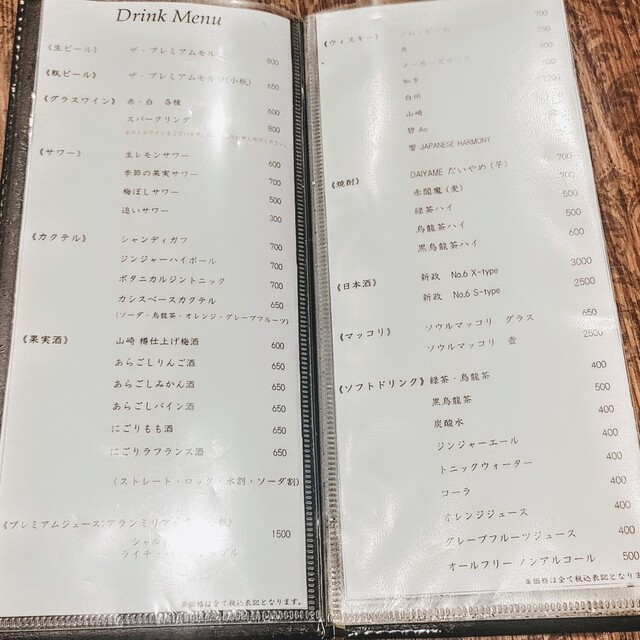 Drink Menu
《生ビール》 ザ・プレミアムモルツ 800
《瓶ビール》 ザ・プレミアムモルツ(小瓶) 650
《グラスワイン》 赤・白 各種 600
スパークリング 800
《サワー》 生レモンサワー 600
季節の果実サワー 700
梅ぼしサワー 500
追いサワー 300
《カクテル》 シャンディガフ 700
ジンジャーハイボール 700
ボタニカルジントニック 700
カシスベースカクテル 650
(ソーダ・烏龍茶・オレンジ・グレープフルーツ)
《果実酒》 山崎 樽仕上げ梅酒 600
あらごしりんご酒 650
あらごしみかん酒 650
あらごしパイン酒 650
にごりもも酒 650
にごりラフランス酒 650
(ストレート・ロック・水割・ソーダ割)
《プレミアムジュース》アランミリア 1500
シャルドネ
ライチ・パイナップル
※価格は全て税込表記となります。
《ウィスキー》 ジム・ビーム 700
750
メーカーズマーク 800
知多
白州
山崎
碧 Ao
響 JAPANESE HARMONY
《焼酎》 DAIYAME だいやめ (芋) 700
赤閻魔 (麦) 700
緑茶ハイ 500
烏龍茶ハイ 500
黒烏龍茶ハイ 600
《日本酒》 新政 No.6 X-type 3000
新政 No.6 S-type 2500
《マッコリ》 ソウルマッコリ グラス 650
ソウルマッコリ 壺 2500
《ソフトドリンク》 緑茶・烏龍茶 400
黒烏龍茶 500
炭酸水 400
ジンジャーエール 400
トニックウォーター 400
コーラ 400
オレンジジュース 400
グレープフルーツジュース 400
オールフリー ノンアルコール 500
※価格は全て税込表記となります